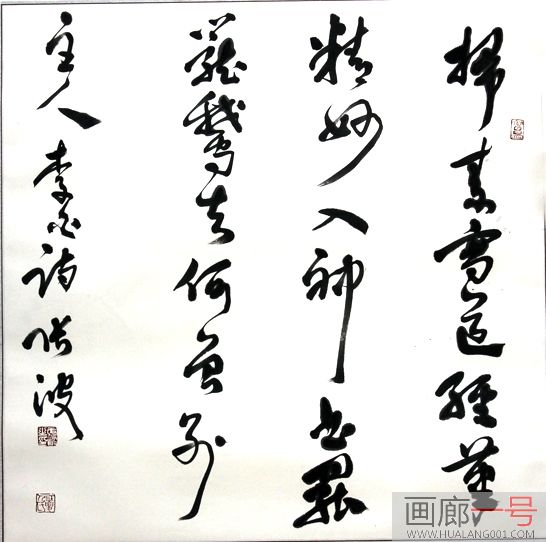 掃素寫道經筆
精妙入神書罷
籠鵝去何曾別
主人 李白詩 张波
画廊一号
WWW.HUALANG001.COM